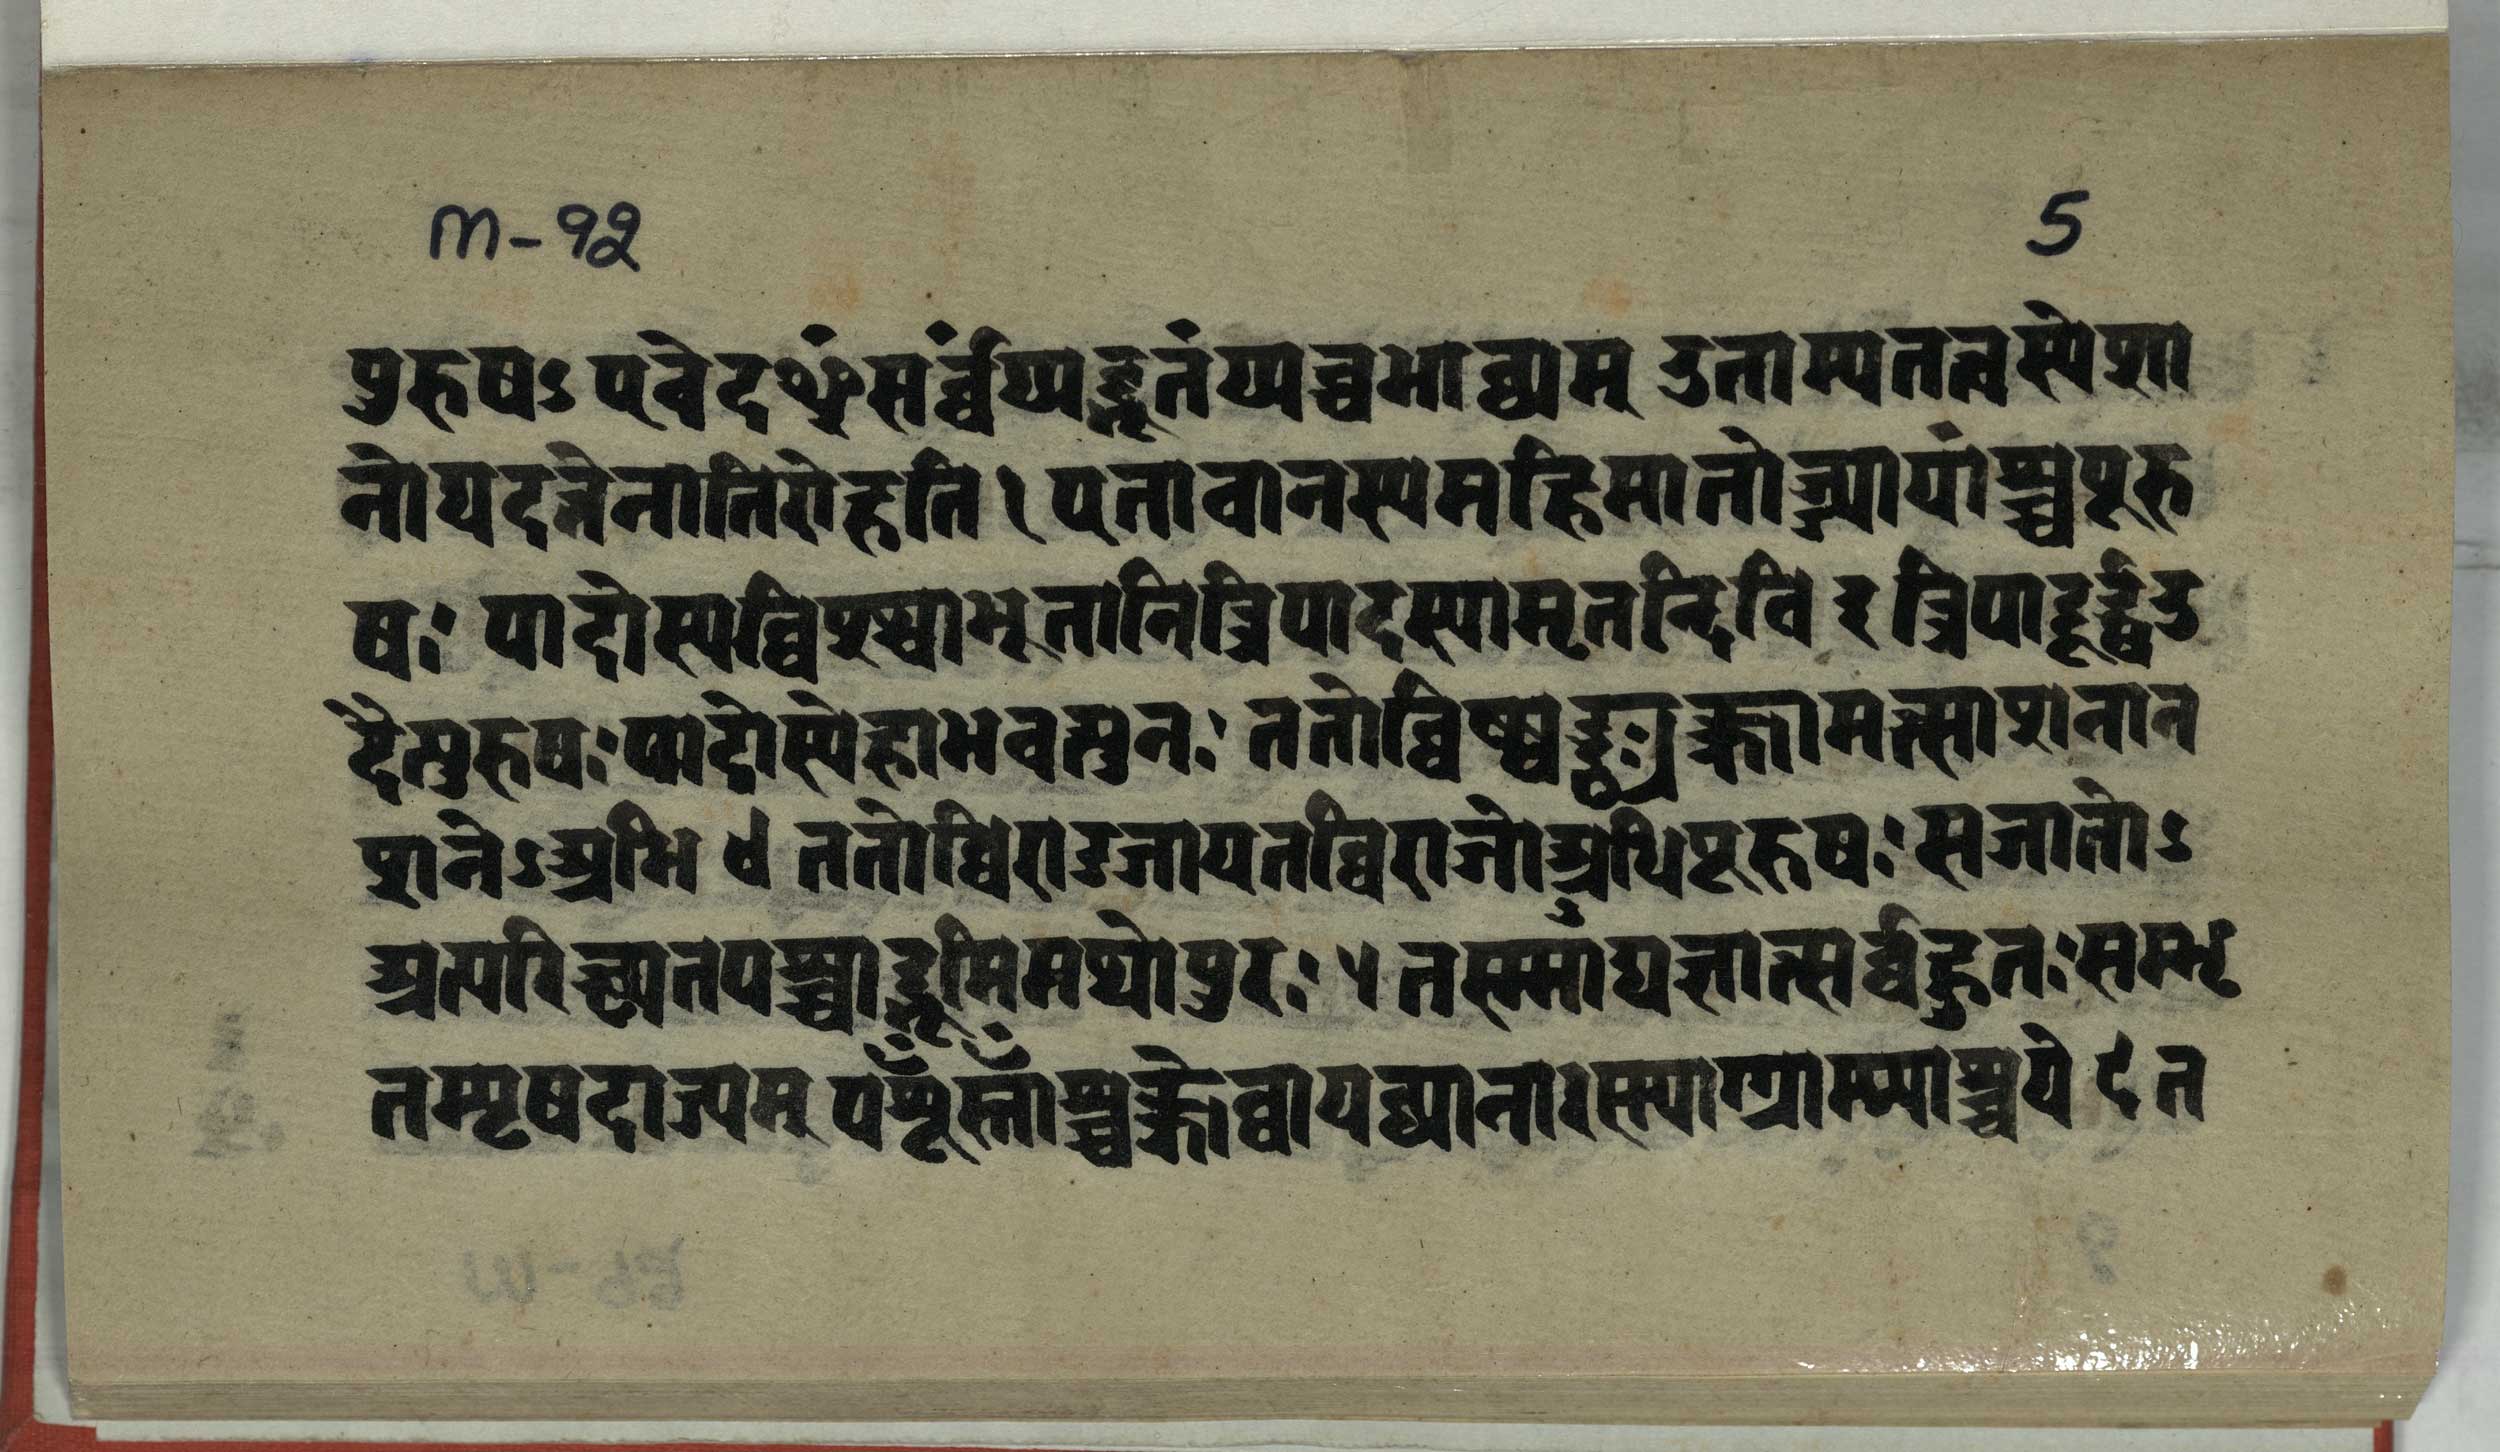 m-१२ 5
पुरुषऽएवेदᳪसंर्व्वंय्यद्भूतंय्यच्चभाव्यम् उतामृतत्वस्येशा
नोयदन्नेनातिरोहति २ एतावानस्यमहिमातोज्ज्यायांश्चपूरु
षः पादोस्यव्विश्श्वाभूतानित्रिपादस्यामृतन्दिवि ३ त्रिपादूर्द्ध्वउ
दैत्पुरुषःपादोस्येहाभवत्पुनः ततोव्विष्ष्वङ्ङ्व्यक्क्रामत्साशनान
शनेऽअभि ४ ततोव्विराडजायतव्विराजोअधिपूरुषः सजातोऽ
अत्यरिच्च्यतपश्चाद्भूमिमथोपुरः ५ तस्म्माद्यज्ञात्सर्व्वहुतःसम्भृ
तम्पृषदाज्यम् पशूँस्ताँश्चक्क्रेव्वायव्यानारण्याग्ग्राम्म्याश्चये ६ त